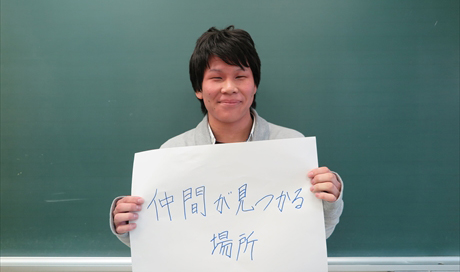 仲間が見つかる
場所